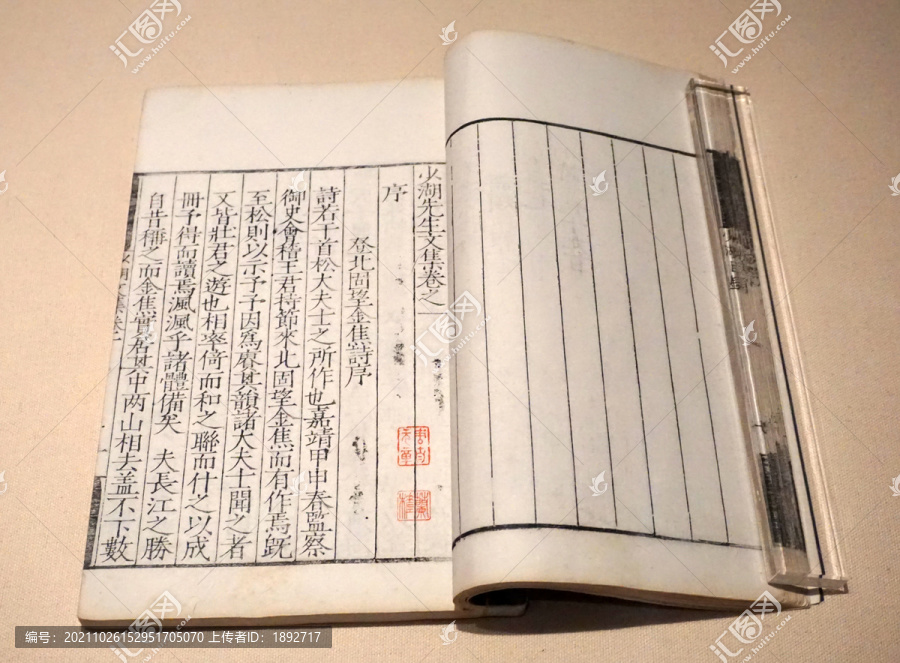 少湖先生文集卷之一
序
登北固望金焦詩序
詩若干首松大夫士之所作也嘉靖甲申春監察
御史會稽王君持節來北固望金焦而有作焉既
至松則以示予予因爲賡其韻諸大夫士聞之者
文皆壯君之遊也相率倚而和之聯而什之以成
冊予得而讀焉渢渢乎諸體備矣 夫長江之勝
自昔稱之而金焦實居其中两山相去盖不下數
汇图网
www.huitu.com
编号：20211026152951705070 上传者ID：1892717